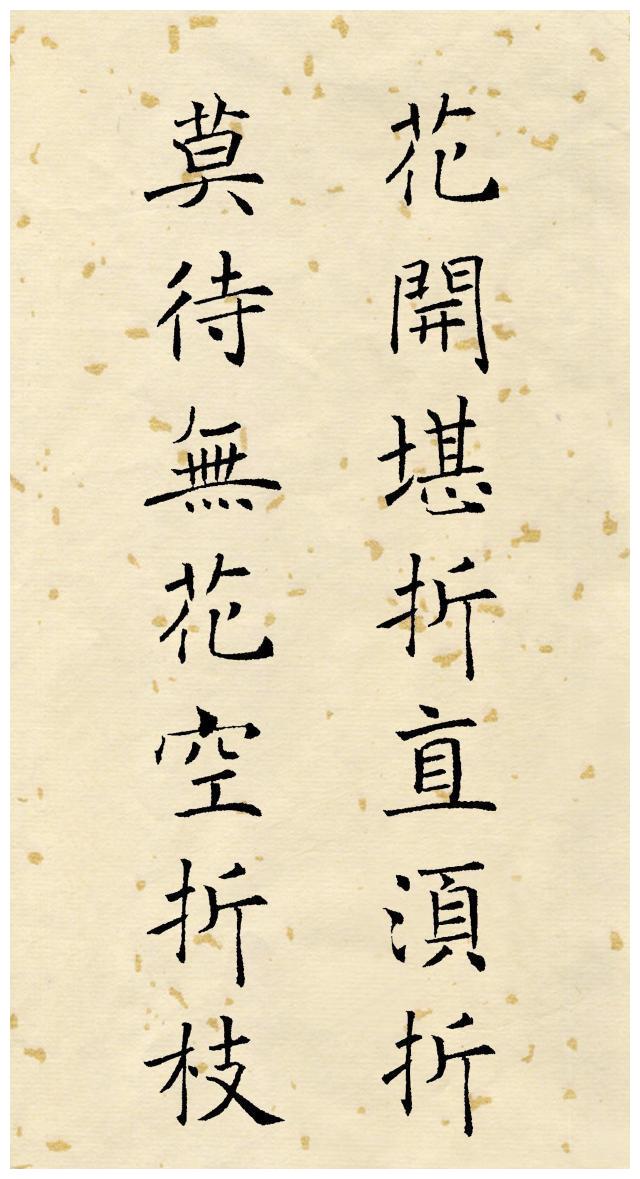 花開堪折直須折
莫待無花空折枝